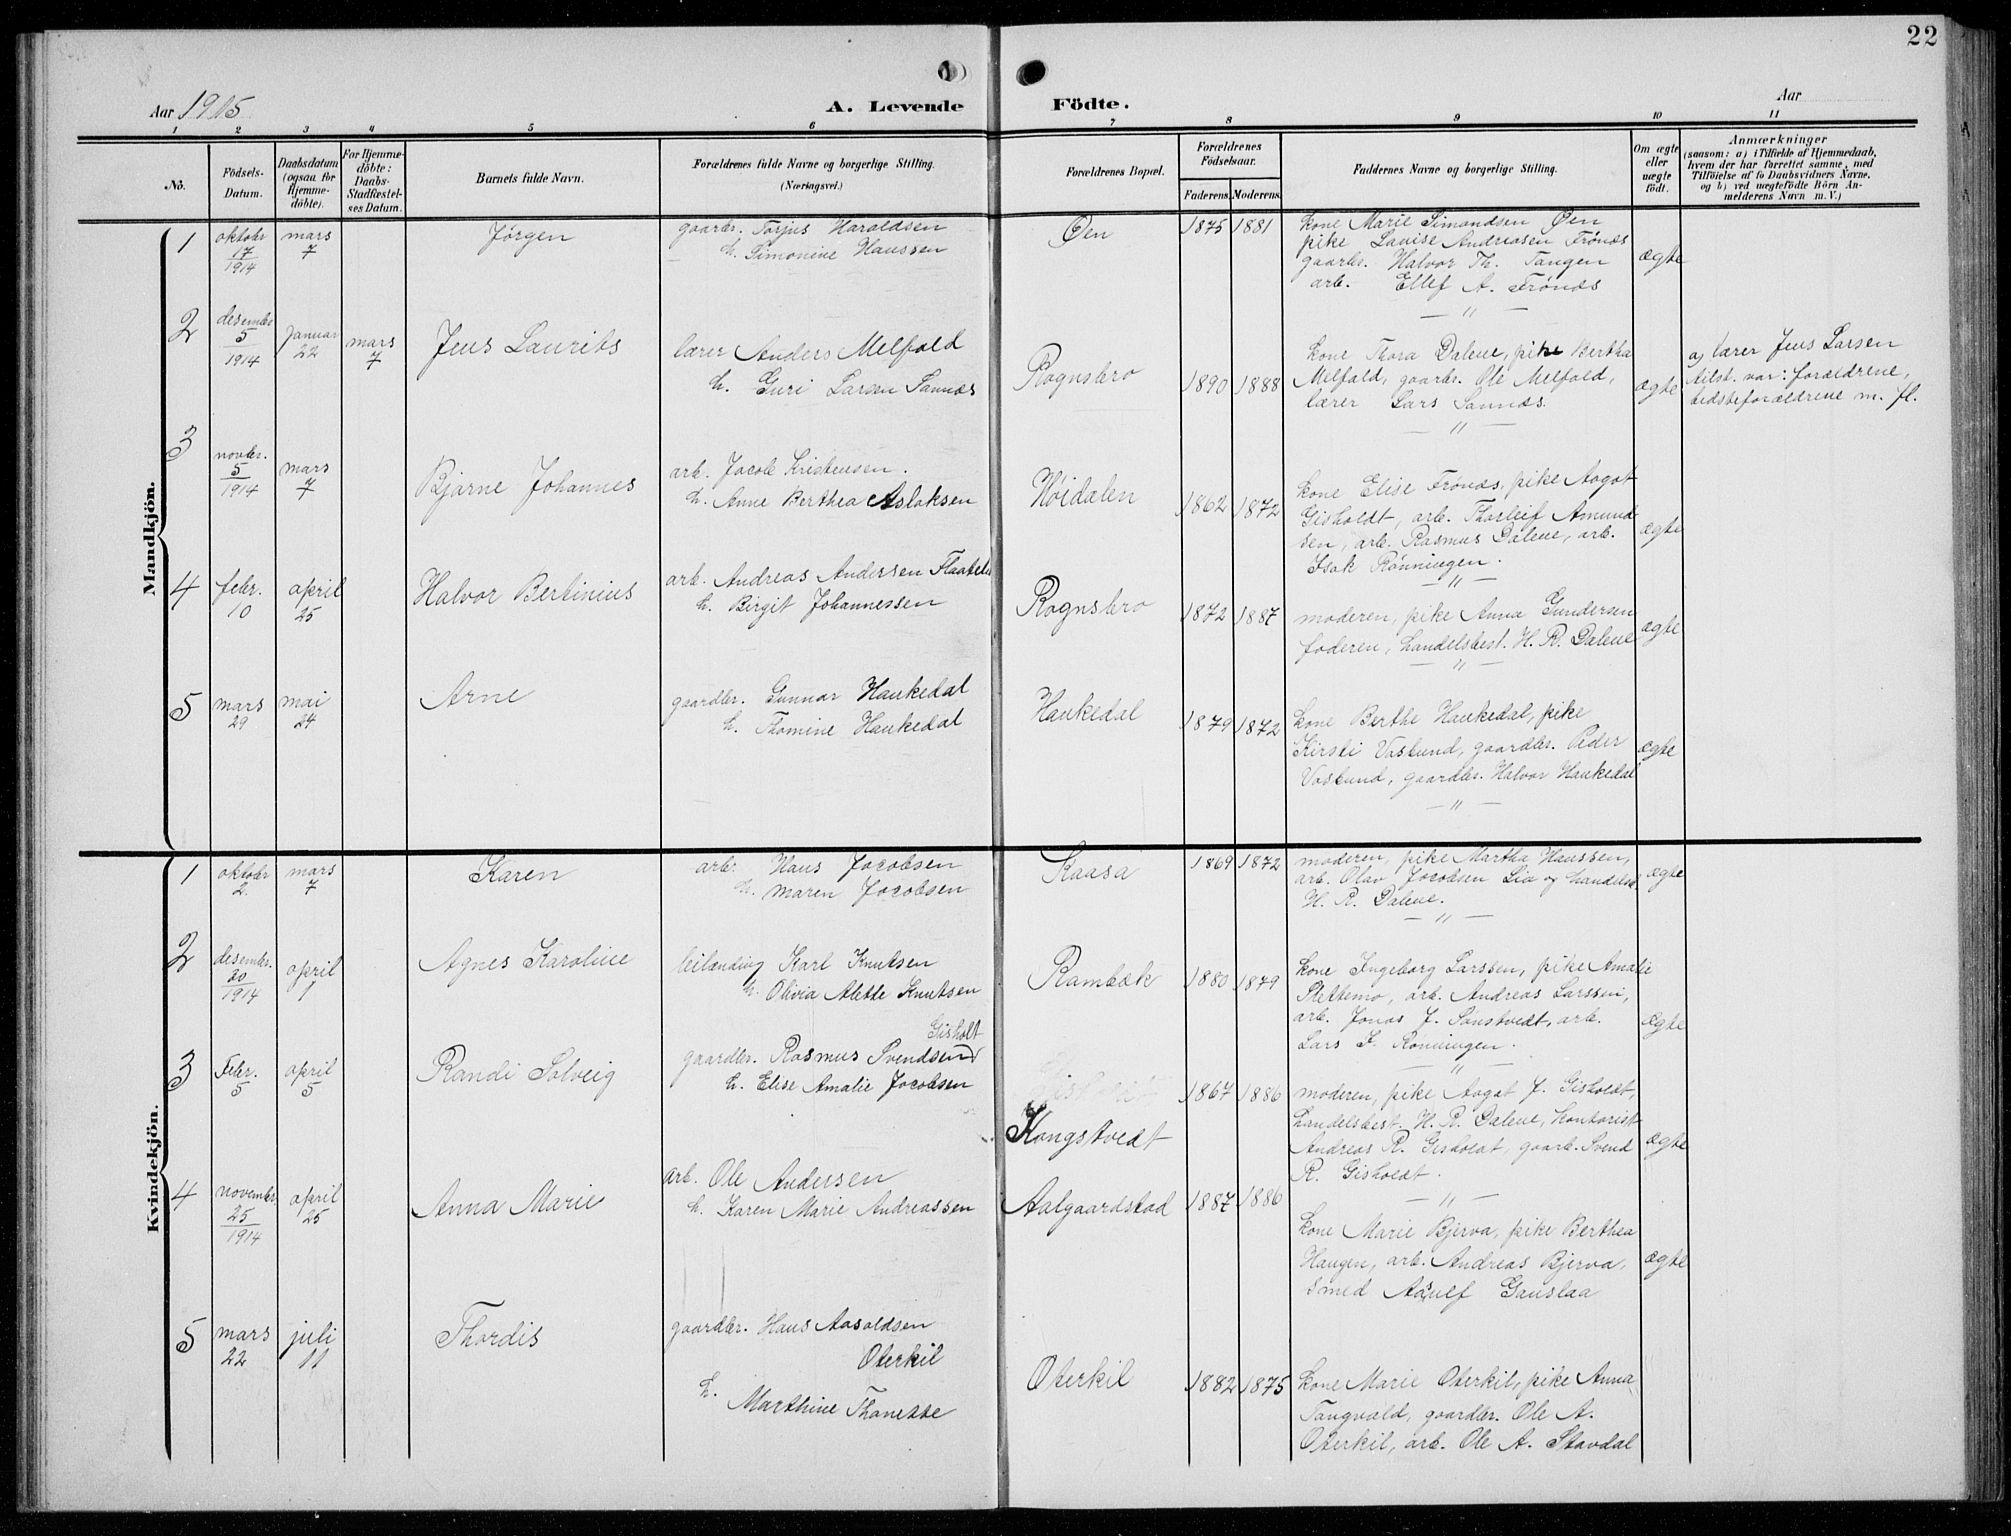 22
Aar 1915
A. Levende Födte.
Aar
1 2 3 4 5 6 7 8 9 10 11
No.
Födsels-
Datum.
Daabsdatum
(ogsaa for
Hjemme-
döbte).
For Hjemme-
döbte:
Daabs-
Stadfæstel-
ses Datum.
Barnets fulde Navn.
Forældrenes fulde Navne og borgerlige Stilling.
(Næringsvei.)
Forældrenes Bopæl.
Forældrenes
Födselsaar.
Faderens. Moderens.
Faddernes Navne og borgerlige Stilling.
Om ægte
eller
uægte
født.
Anmærkninger
(saasom: a) i Tilfælde af Hjemmedaab,
hvem der har forrettet samme, med
Tilföielse af to Daabsvidners Navne,
og b) ved uægtefödte Börn An-
melderens Navn m. V.)
Mandkjön.
1
oktober
17
1914
mars
7
Jørgen
gaarbr. Torjus Haroldsen
h. Simonine Hanssen
Øen
1875 1881
kone Marie Simondsen Øen
pike Lovise Andreasen Trónæs
gaarbr. Halvor Th. Tangen
arb. Ellef A. Trónæs
— " —
ægte
2
desember
5
1914
januar
22
mars
7
Jens Laurits
lærer Anders Melfald
h. Guri Larsen Sannæs
Rognsbro
1890 1888
kone Thora Dalene, pike Bertha
Melfald, gaarbr. Ole Melfald,
lærer Lars Sannæs.
— " —
ægte
a) lærer Jens Larsen
tilst. var: forældrene,
bedsteforældrene m. fl.
3
novbr.
5
1914
mars
7
Bjarne Johannes
arb. Jacob Kristensen.
h. Anne Berthea Aslaksen
Høidalen
1862 1872
kone Elise Trónæs, pike Aagot
Gisholdt, arb. Thorleif Amund-
sen, arb. Rasmus Dalene, arb.
Isak Rønningen.
— " —
ægte
4
febr.
10
april
25
Halvor Bertinius
arb. Andreas Andersen
h. Birgit Johannessen
Rognsbro
1872 1887
moderen, pike Anna Gundersen
faderen, handelsbest. H. R. Dalene
— " —
ægte
5
mars
29
mai
24
Arne
gaardbr. Gunnar Haukedal
h. Thomine Haukedal
Haukedal
1879 1872
kone Berthe Haukedal, pike
Kirsti Vasbund, gaardbr. Peder
Vasbund, gaardbr. Halvor Haukedal
— " —
ægte
Kvindekjön.
1
oktober
2
mars
7
Karen
arb. Hans Jacobsen
h. Maren Jacobsen
Kaasa
1869 1872
moderen, pike Martha Hanssen,
arb. Olav Jocobsen Lia og handelsb.
H. R. Dalene.
— " —
ægte
2
desember.
20
1914
april
1
Agnes Karoline
leilænding Karl Knutsen
h. Olivia Alette Knutsen
Rambæk
1880 1879
kone Ingeborg Larssen, pike Amalie
Plettemo, arb. Andreas Larssen,
arb. Jonas J. Sanstvedt, arb.
Lars J. Ronningen.
— " —
ægte
3
Febr.
5
april
5
Randi Solveig
Gisholt
gaardbr. Rasmus Svendsen
h. Elise Amalie Jacobsen
Kongstvedt
1867 1886
moderen, pike Aagot J. Gisholdt,
handelsbest. H. R. Dalene, kontorist
Andreas R. Gisholdt, gaarb. Svend
R. Gisholdt.
— " —
ægte
4
november
25
1914
april
25
Anna Marie
arb. Ole Andersen
h. Karen Marie Andreassen
Aalgaardstad
1887 1886
kone Marie Bjerva, pike Berthea
Haugen, arb. Andreas Bjerva,
smed Asulf Gauslaa
ægte
5
mars
22
juli
11
Thordis
gaardbr. Hans Aasoldsen
Oterkil
h. Marthine Thonette
Oterkil
1882 1875
kone Marie Oterkil, pike Anna
Tangvald, gaardbr. Ole A.
Oterkil, arb. Ole A. Stavdal